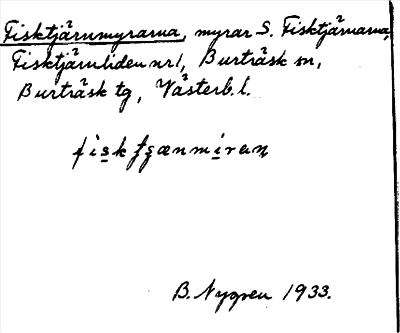 Fisktjärnmyrarna, myrar S. Fisktjärnarna,
Fisktjärnliden nr 1, Burträsk sn,
Burträsk tg, Västerb. l.
B. Nygren 1933.